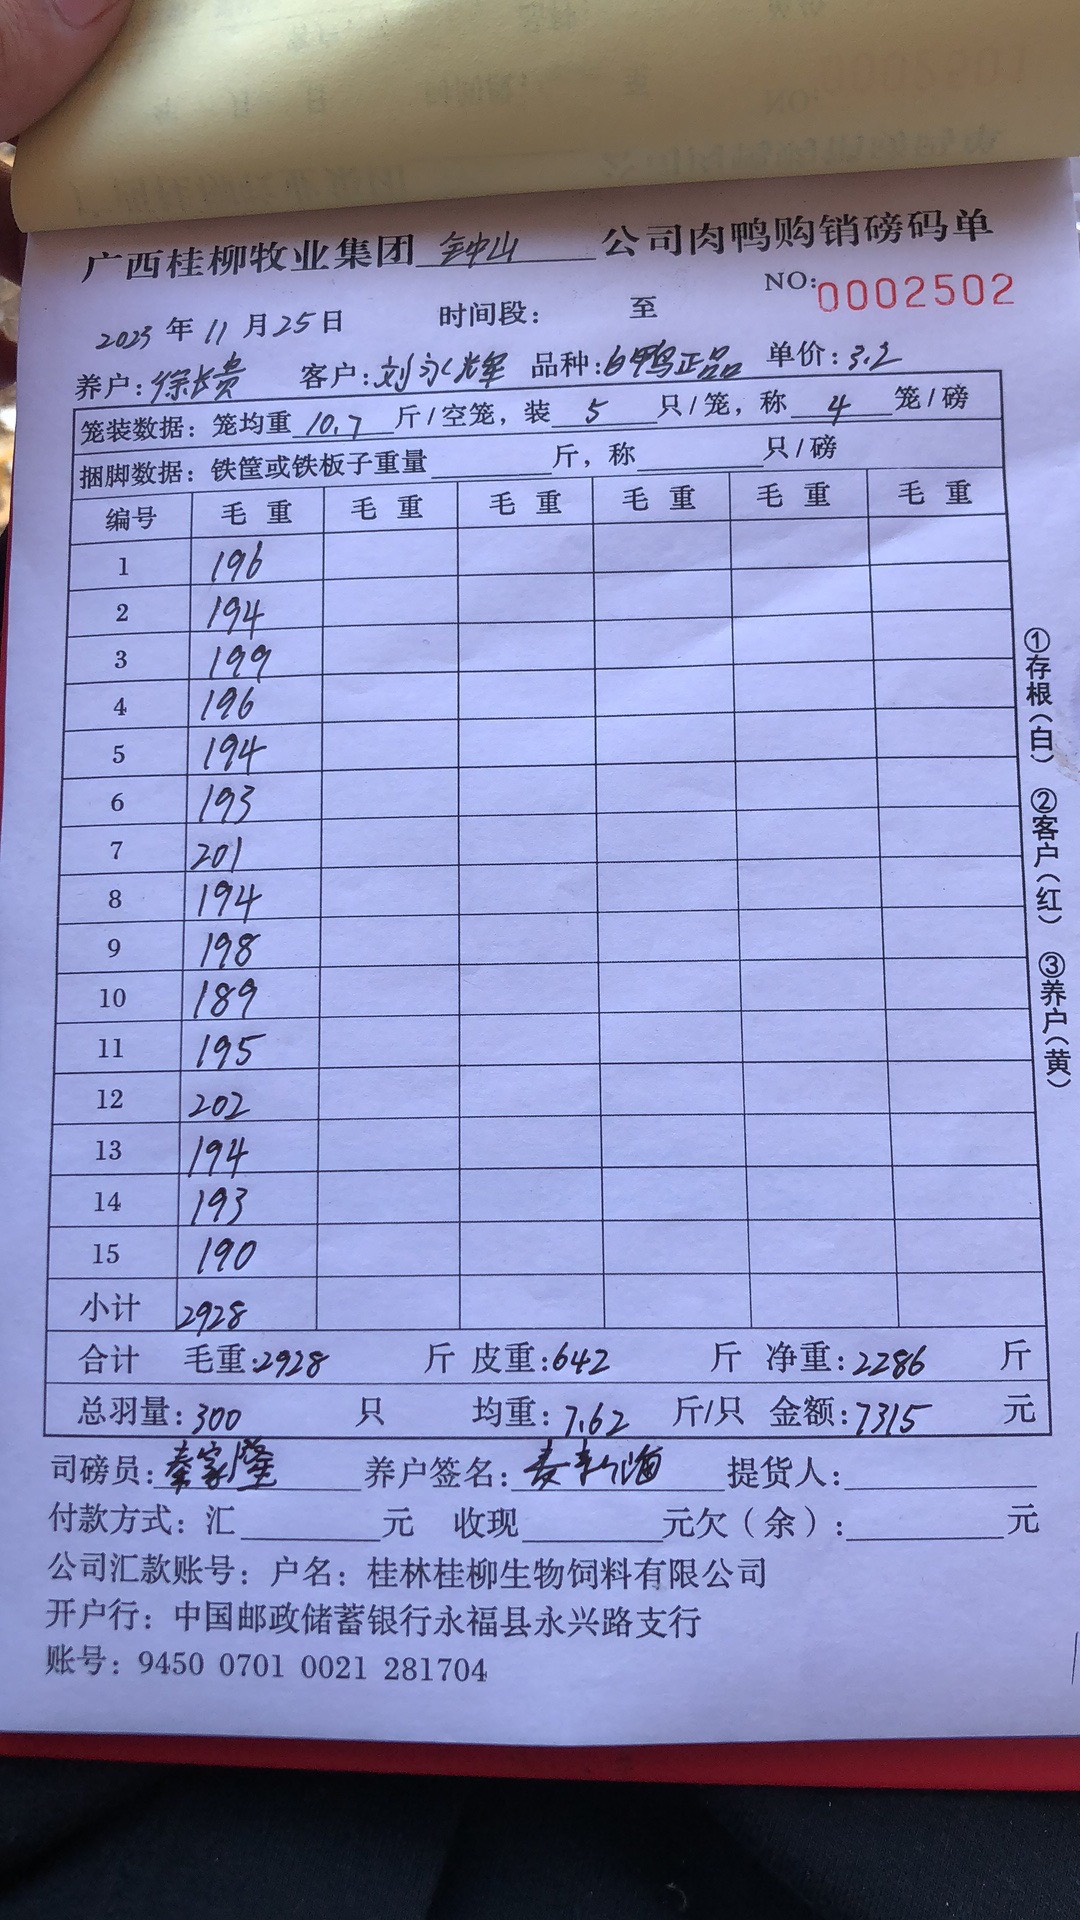 广西桂柳牧业集团 钟山 公司肉鸭购销磅码单
NO: 0002502
2023 年 11 月 25 日 时间段： 至
养户: 徐长贵 客户: 刘永辉 品种: 白鸭正品 单价: 3.2
笼装数据：笼均重 10.7 斤/空笼，装 5 只/笼，称 4 笼/磅
捆脚数据：铁筐或铁板子重量 斤，称 只/磅
编号 毛重 毛重 毛重 毛重 毛重 毛重
1 196
2 194
3 199
4 196
5 194
6 193
7 201
8 194
9 198
10 189
11 195
12 202
13 194
14 193
15 190
小计 2928
合计 毛重: 2928 斤 皮重: 642 斤 净重: 2286 斤
总羽量: 300 只 均重: 7.62 斤/只 金额: 7315 元
司磅员: 秦家隆 养户签名: 提货人:
付款方式：汇 元 收现 元欠（余）: 元
公司汇款账号：户名：桂林桂柳生物饲料有限公司
开户行：中国邮政储蓄银行永福县永兴路支行
账号：9450 0701 0021 281704
①存根（白） ②客户（红） ③养户（黄）